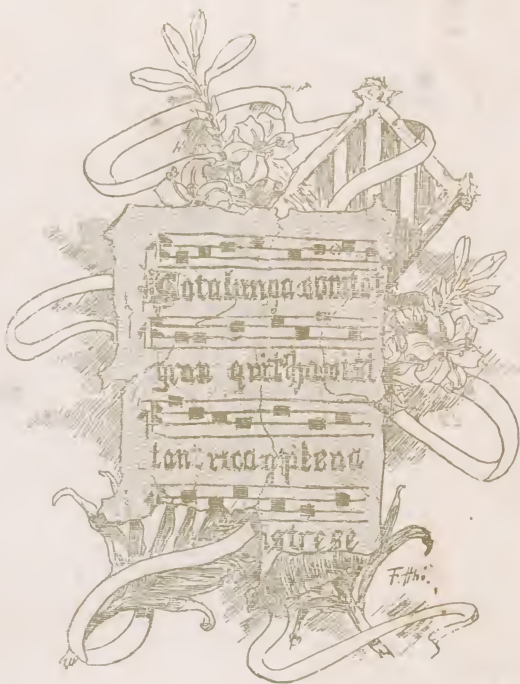 Catalunya comta
gran quit ha vist
tan rica y plena